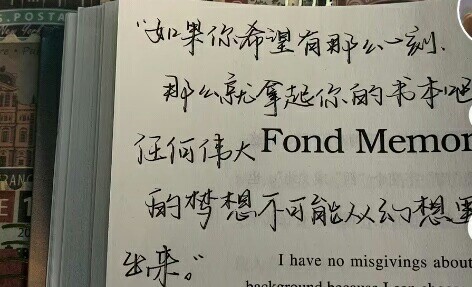 S. POSTA
"如果你希望有那么一刻.
那么就拿起你的书本吧
任何伟大 Fond Memor
的梦想不可能从幻想里
出来。"
I have no misgivings about
background because I can choose